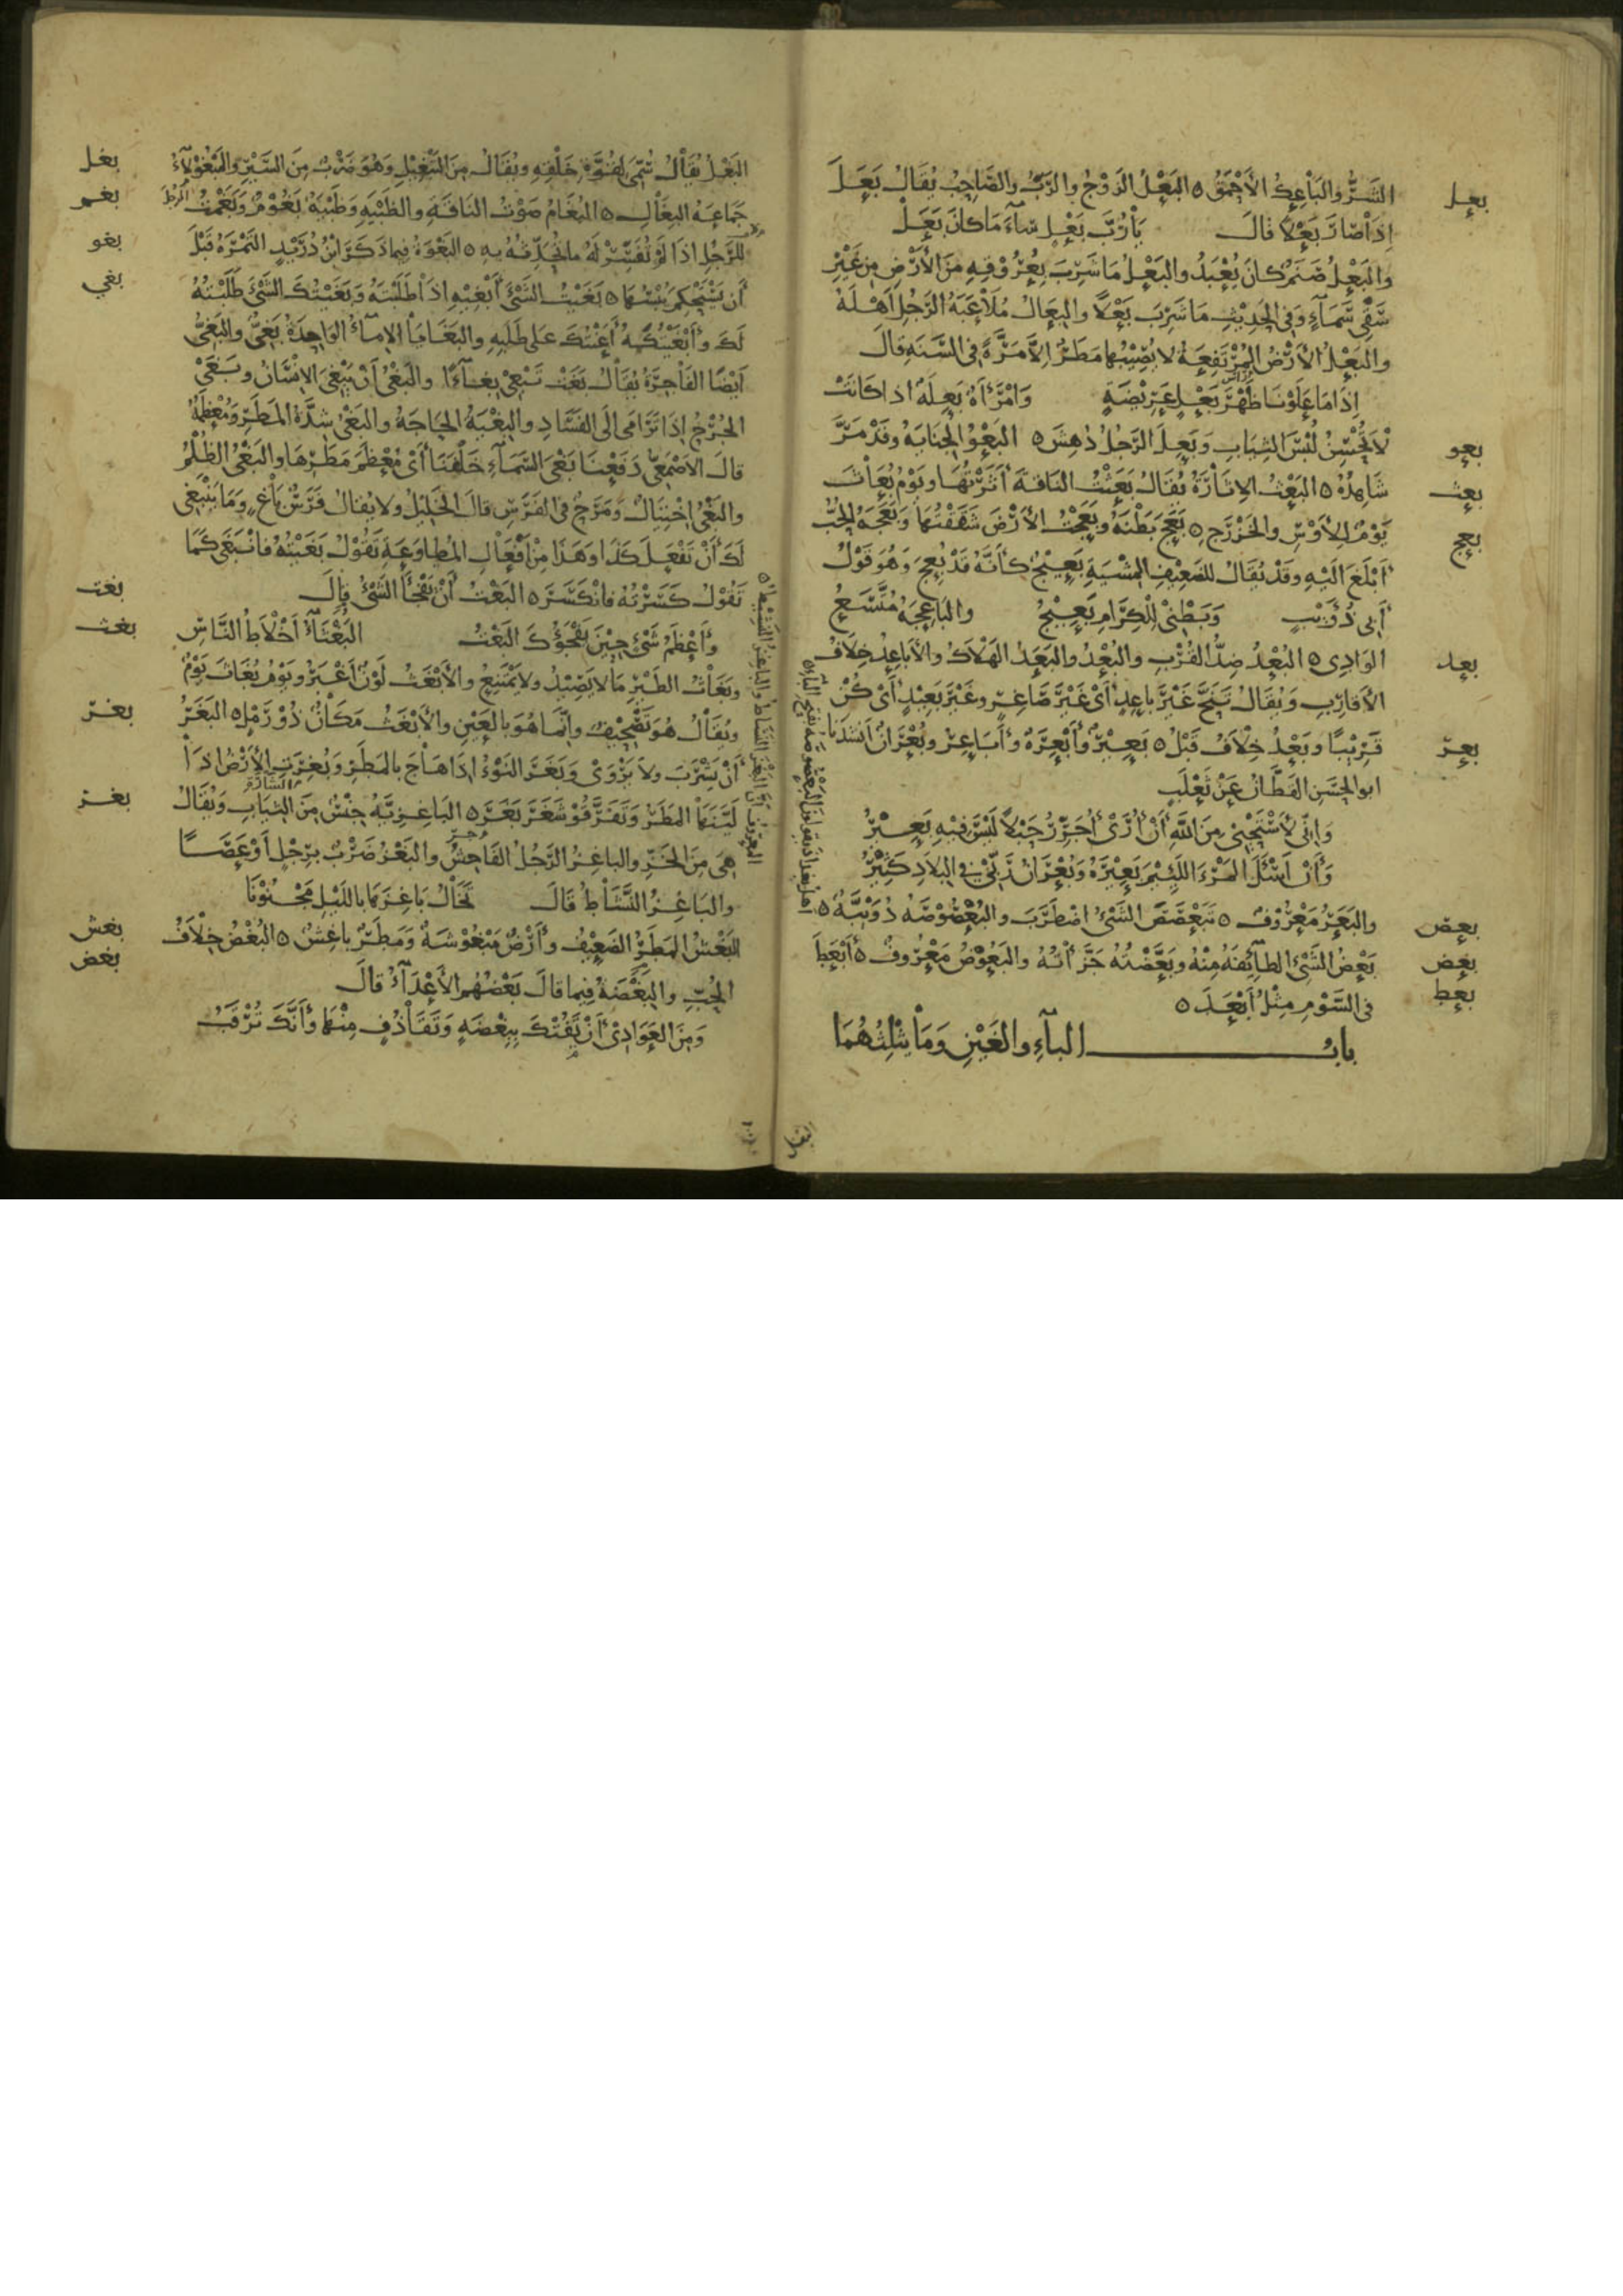 بعل
السَّرُّ والبَاعِكُ الأَحْمَقُ ه البَعْلُ الزَوْجُ والرَّبُّ والصَّاحِبُ يُقَالُ بَعَلَ
اِذَا صَارَ بَعْلًا قالَ يَا رُبَّ بَعْلٍ سَاءَ مَا كانَ بَعَلْ
والبَعْلُ صَنَمٌ كانَ يُعْبَدُ والبَعْلُ مَا شَرِبَ بِعُرُوْقِهِ مِنَ الأَرْضِ مِن غَيْرِ
سَقْيِ سَمَآءٍ وَفي الحَدِيْثِ مَا شَرِبَ بَعْلًا والبِعَالُ مُلَاعَبَةُ الرَّجُلِ اَهْلَهُ
والبَعْلُ الأَرْضُ المُرْتَفِعَةُ لا يُصِيْبُهَا مَطَرٌ اِلَّا مَرَّةً في السَّنَةِ قالَ
اِذَا مَا عَلَوْنَا ظَهْرَ بَعْلٍ عَرِيْضَةٍ وَامْرَأَةٌ بَعِلَةٌ اذا كانَتْ
بعو
لَا تُحْسِنُ لُبْسَ الثِيَابِ وَبَعِلَ الرَّجُلُ دَهِشَ ه البَعْوُ الجِنَايَةُ وقَدْ مَرَّ
بعث
شَاهِدُهُ ه البَعْثُ الاِثَارَةُ يُقَالُ بَعَثْتُ النَاقَةَ أَثَرْتُهَا ويَوْمُ بُعَاثَ
بعج
يَوْمٌ لِلأَوْسِ والخَزْرَجِ ه بَعَجَ بَطْنَهُ وبَعَجْتُ الأَرْضَ شَقَقْتُهَا وَبَعَجَهُ الحُبُّ
أَبْلَغَ اِلَيْهِ وقَدْ يُقَالُ للضَعِيْفِ المِشْيَةِ بَعِيْجٌ كأَنَّهُ قَدْ بُعِجَ وَهُوَ قَوْلُ
أَبي ذُؤَيْبٍ وَبَطْنِي لِلْكِرَامِ بَعِيْجُ والبَاعِجَةُ مُتَّسَعُ
بعد
الوَادِي ه البُعْدُ ضِدُّ القُرْبِ والبُعْدُ والبَعَدُ الهَلَاكُ والأَبَاعِدُ خِلَافُ
الأقَارِبِ وَيُقَالُ تَنَحَّ غَيْرَ بَاعِدٍ أَيْ غَيْرَ صَاغِرٍ وغَيْرَ بَعِيْدٍ أَيْ كُنْ
بعر
قَرِيْبًا وبَعْدُ خِلَافُ قَبْلُ ه بَعِيْرٌ وأَبْعِرَةٌ وأَبَاعِرُ وبُعْرَانٌ اَنشَدَنَا
ابو الحَسَنِ القَطَّانُ عَنْ ثَعْلَبٍ
وَإنِّي لَأَسْتَحْيِي مِنَ اللهِ أَنْ أُرَى أُجَرِّرُ حَبْلًا لَيْسَ فِيْهِ بَعِيْرُ
وَأَنْ أَسْئَلَ المَرْءَ اللَئِيْمَ بَعِيْرَهُ وَبُعْرَانُ رَبِّي في البِلَادِ كَثِيْرُ
بعص
والبَعَرُ مَعْرُوْفٌ ه تَبَعْصَصَ الشَيْءُ اضْطَرَبَ والبُعْصُوْصَةُ دُوَيْبَّةٌ ه
بعض
بَعْضُ الشَيْءِ الطَائِفَةُ مِنْهُ وبَعَّضْتُهُ جَزَّأْتُهُ والبَعُوْضُ مَعْرُوفٌ ه أَبْعَطَ
بعط
في السَّوْمِ مِثْلُ أَبْعَدَ ه
بابُ البَآءِ والغَيْنِ وَمَا يَثْلِثُهُمَا
بغل
البَغْلُ يُقَالُ سُمِّيَ لِقُوَّةِ خَلْقِهِ ويُقَالُ مِنَ التَبْغِيْلِ وَهُوَ ضَرْبٌ مِنَ السَيْرِ والمَبْغُوْلَآءُ
بغم
جَمَاعَةُ البِغَالِ ه البُغَامُ صَوْتُ النَاقَةِ والظَبْيَةِ وظَبْيَةٌ بَغُوْمٌ وَبَغَمْتُ
بغو
للرَّجُلِ اذَا لَمْ تُفَسِّرْ لَهُ مَا تُحَدِّثُهُ بِهِ ه البَغْوَةُ فِيمَا ذَكَرَ ابْنُ دُرَيْدٍ التَمْرَةُ قَبْلَ
بغي
أَن يَسْتَحْكِمَ يُبْسُهَا ه بَغَيْتُ الشَيْءَ أَبْغِيْهِ اذَا طَلَبْتَهُ وَبَغَيْتُكَ الشَيْءَ طَلَبْتُهُ
لَكَ وأَبْغَيْتُكَهُ أَعَنْتُكَ عَلى طَلَبِهِ والبَغَايَا الاِمَاءُ الوَاحِدَةُ بَغِيٌّ والبَغِيُّ
أَيْضًا الفَاجِرَةُ يُقَالُ بَغَتْ تَبْغِيْ بِغَآءً والبَغْيُ أَنْ يَبْغِيَ الاِنْسَانُ وبَغْيُ
الجُرْحِ اِذَا تَرَامَى إلَى الفَسَادِ والبِغْيَةُ الحَاجَةُ والبَغْيُ شِدَّةُ المَطَرِ وَمُعْظَمُهُ
قالَ الاَصْمَعِيُّ دَفَعْنَا بَغْيَ السَّمَآءِ خَلْفَنَا أَيْ مُعْظَمَ مَطَرِهَا والبَغْيُ الظُلْمُ
والبَغْيُ اخْتِيَالٌ وَمَرَحٌ في الفَرَسِ قالَ الخَلِيْلُ ولا يُقالُ فَرَسٌ بَاغٍ وَمَا يَنْبَغِي
لَكَ أَنْ تَفْعَلَ كَذَا وَهَذَا مِنْ أَفْعَالِ المُطَاوَعَةِ تَقُوْلُ بَغَيْتُهُ فانْبَغَى كَمَا
بغت
تَقُوْلُ كَسَرْتُهُ فانْكَسَرَ ه البَغْتُ أَنْ يَفْجَأَ الشَيْءُ قالَ
بغث
وأَعْظَمُ شَيْءٍ حِيْنَ يَفْجَؤُكَ البَغْتُ البَغْثَآءُ أَخْلَاطُ النَّاسِ
وبُغَاثُ الطَيْرِ مَا لا يَصِيْدُ ولا يَمْتَنِعُ والأَبْغَثُ لَوْنٌ أَغْبَرُ ويَوْمُ بُغَاثَ يَوْمٌ
بغر
ويُقَالُ هُوَ تَصْحِيْفٌ وإنَّمَا هُوَ بِالعَيْنِ والأَبْغَثُ مَكَانٌ ذُوْ رَمْلٍ ه البَغَرُ
أَنْ يَشْرَبَ ولَا يَرْوَى وَبَغَرَ النَوْءُ اِذَا هَاجَ بالمَطَرِ وَبُغِرَتِ الأَرْضُ اذَا
بغز
لَيَّنَهَا المَطَرُ وَتَفَرَّقُوْا شَغَرَ بَغَرَ ه البَاغِزِيَّةُ جِنْسٌ مِنَ الثِيَابِ وَيُقَالُ
هِيَ مِنَ الخَزِّ والبَاغِزُ الرَّجُلُ الفَاحِشُ والبَغْزُ ضَرْبٌ بِرِجْلٍ اَوْ عَصًا
والبَاغِزُ النَّشَاطُ قالَ تَخَالُ بَاغِزَهَا باللَيْلِ مَجْنُوْنَا
بغش
البَغْشُ المَطَرُ الضَعِيْفُ وأَرْضٌ مَبْغُوْشَةٌ وَمَطَرٌ بَاغِشٌ ه البُغْضُ خِلَافُ
بغض
الحُبِّ والبِغْضَةُ فِيمَا قالَ بَعْضُهُم الأَعْدَآءُ قَالَ
وَمِنَ العَوَادِيْ أَنْ تَقَتْكَ بِبِغْضَةٍ وَتَقَاذُفٍ مِنْهَا وأَنَّكَ تُرْقَبُ